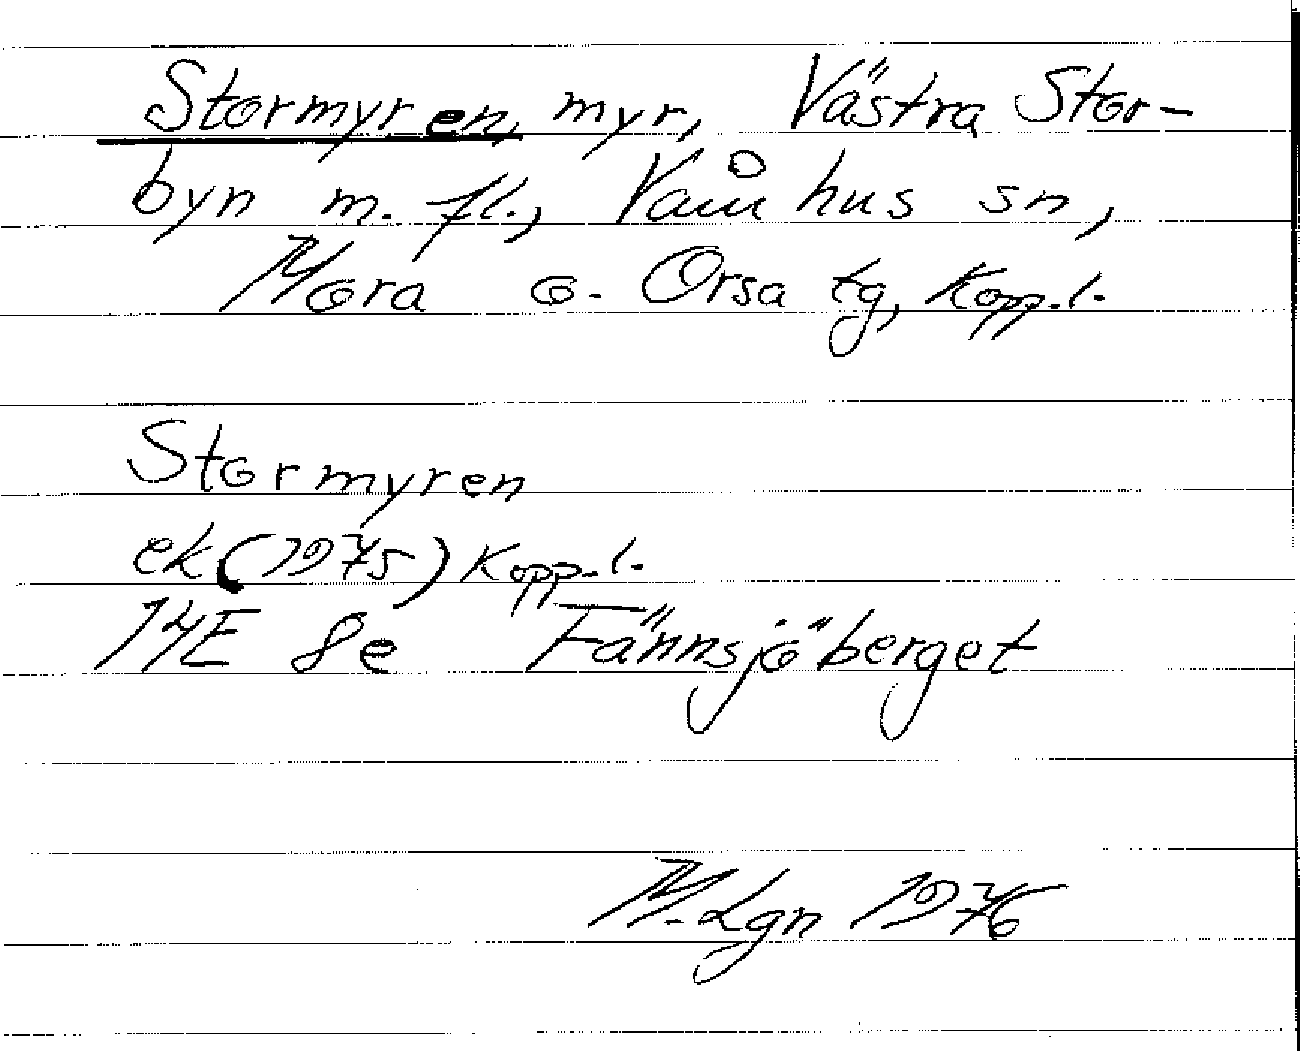 Stormyren, myr, Västra Stor-
byn m. fl., Våmhus sn,
Mora o. Orsa tg, Kopp.l.
Stormyren
ek (1975) Kopp.l.
14E 8e Fännsjöberget
M. Lgn 1976